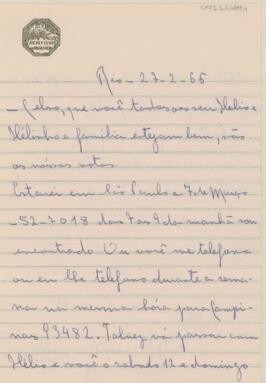 JOCKEY CLUB
Rio - 27-2-66
- Celso, que você todos os seu Helio e
Hélinho e familia estejam bem, são
os nóssos votos
Estarei em São Paulo e 7 de Março
- 52-7018 das 7 as 9 da manhã sou
encontrado. Ou você me telefona
ou eu lhe telefono durante a sema-
na na mesma hóra para Campi-
nas 93482. Talvez vá passar com
Hélio e você o sabado 12 e domingo